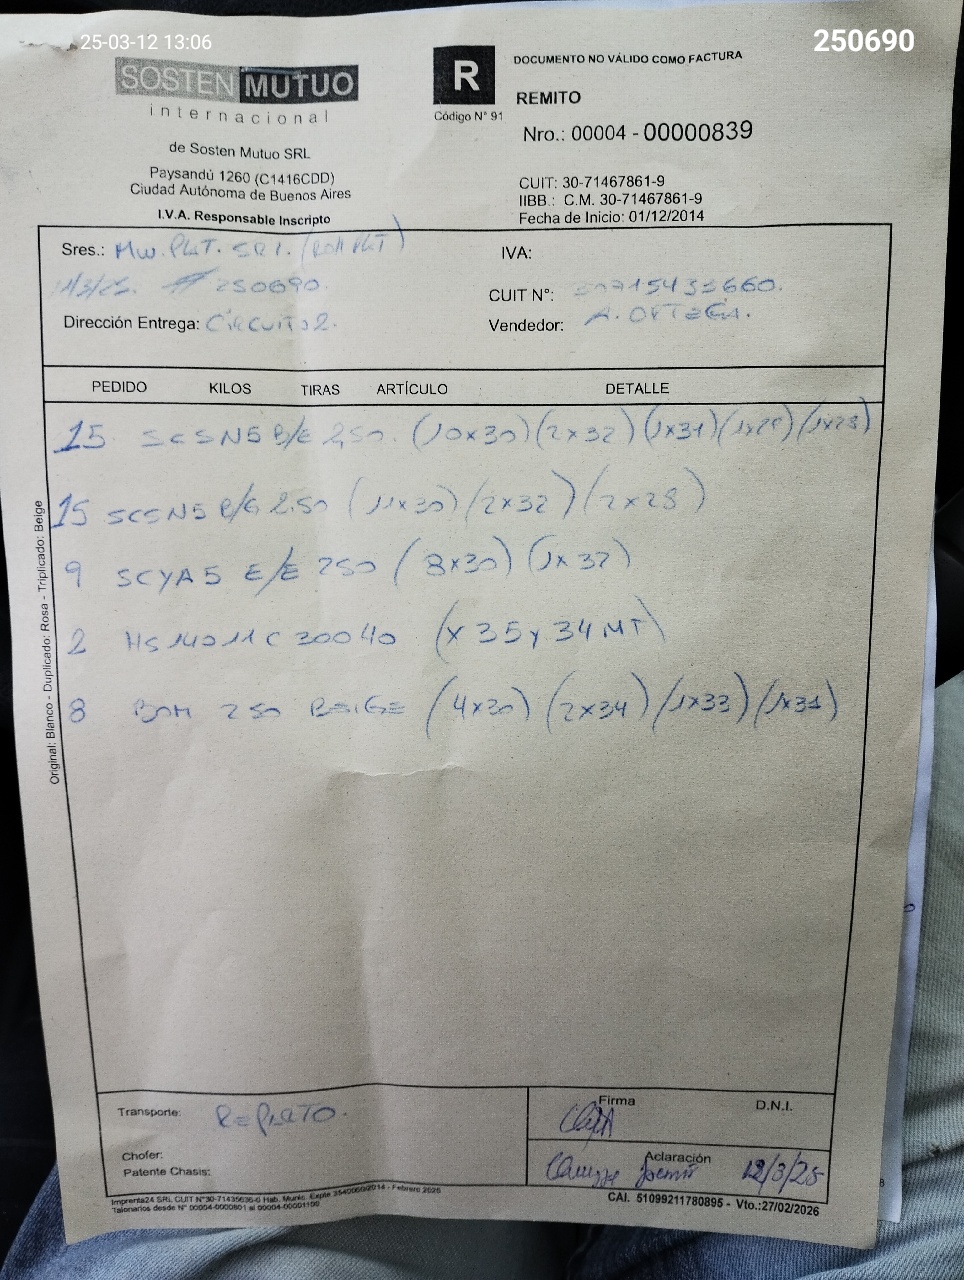 25-03-12 13:06
250690
SOSTEN MUTUO
internacional
de Sosten Mutuo SRL
Paysandú 1260 (C1416CDD)
Ciudad Autónoma de Buenos Aires
I.V.A. Responsable Inscripto
R
Código N° 91
DOCUMENTO NO VÁLIDO COMO FACTURA
REMITO
Nro.: 00004 - 00000839
CUIT: 30-71467861-9
IIBB.: C.M. 30-71467861-9
Fecha de Inicio: 01/12/2014
Sres.: MW. PLAT. SRL.
250690
IVA:
CUIT N°: 30715435660.
Dirección Entrega: CIRCUITO 2.
Vendedor: A. ORTEGA.
PEDIDO KILOS TIRAS ARTÍCULO DETALLE
15 SCSN5 E/E 2,50. (10x30) (2x32) (1x31) (1x29) (1x28)
15 SCSN5 E/G 2.50 (11x30) (2x32) (2x28)
9 SCYA5 E/E 250 (8x30) (1x32)
2 HS 140 11 C 30040 (x 35 y 34 MT)
8 BOM 250 BEIGE (4x30) (2x34) (1x33) (1x31)
Original: Blanco - Duplicado: Rosa - Triplicado: Beige
Transporte:
Chofer:
Patente Chasis:
Firma
D.N.I.
Aclaración
12/3/25
Imprenta24 SRL CUIT N°30-71435636-0 Hab. Munic. Expte 3540060/2014 - Febrero 2025
Talonarios desde N° 00004-0000801 al 00004-00001100
CAI. 51099211780895 - Vto.:27/02/2026